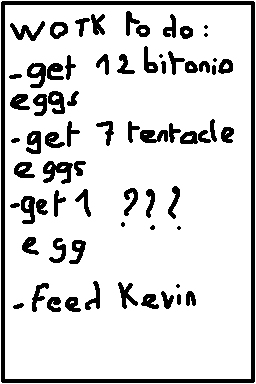 WOrK to do:
-get 12 bitonio
eggs
-get 7 tentacle
eggs
-get 1 ???
egg
-Feed Kevin